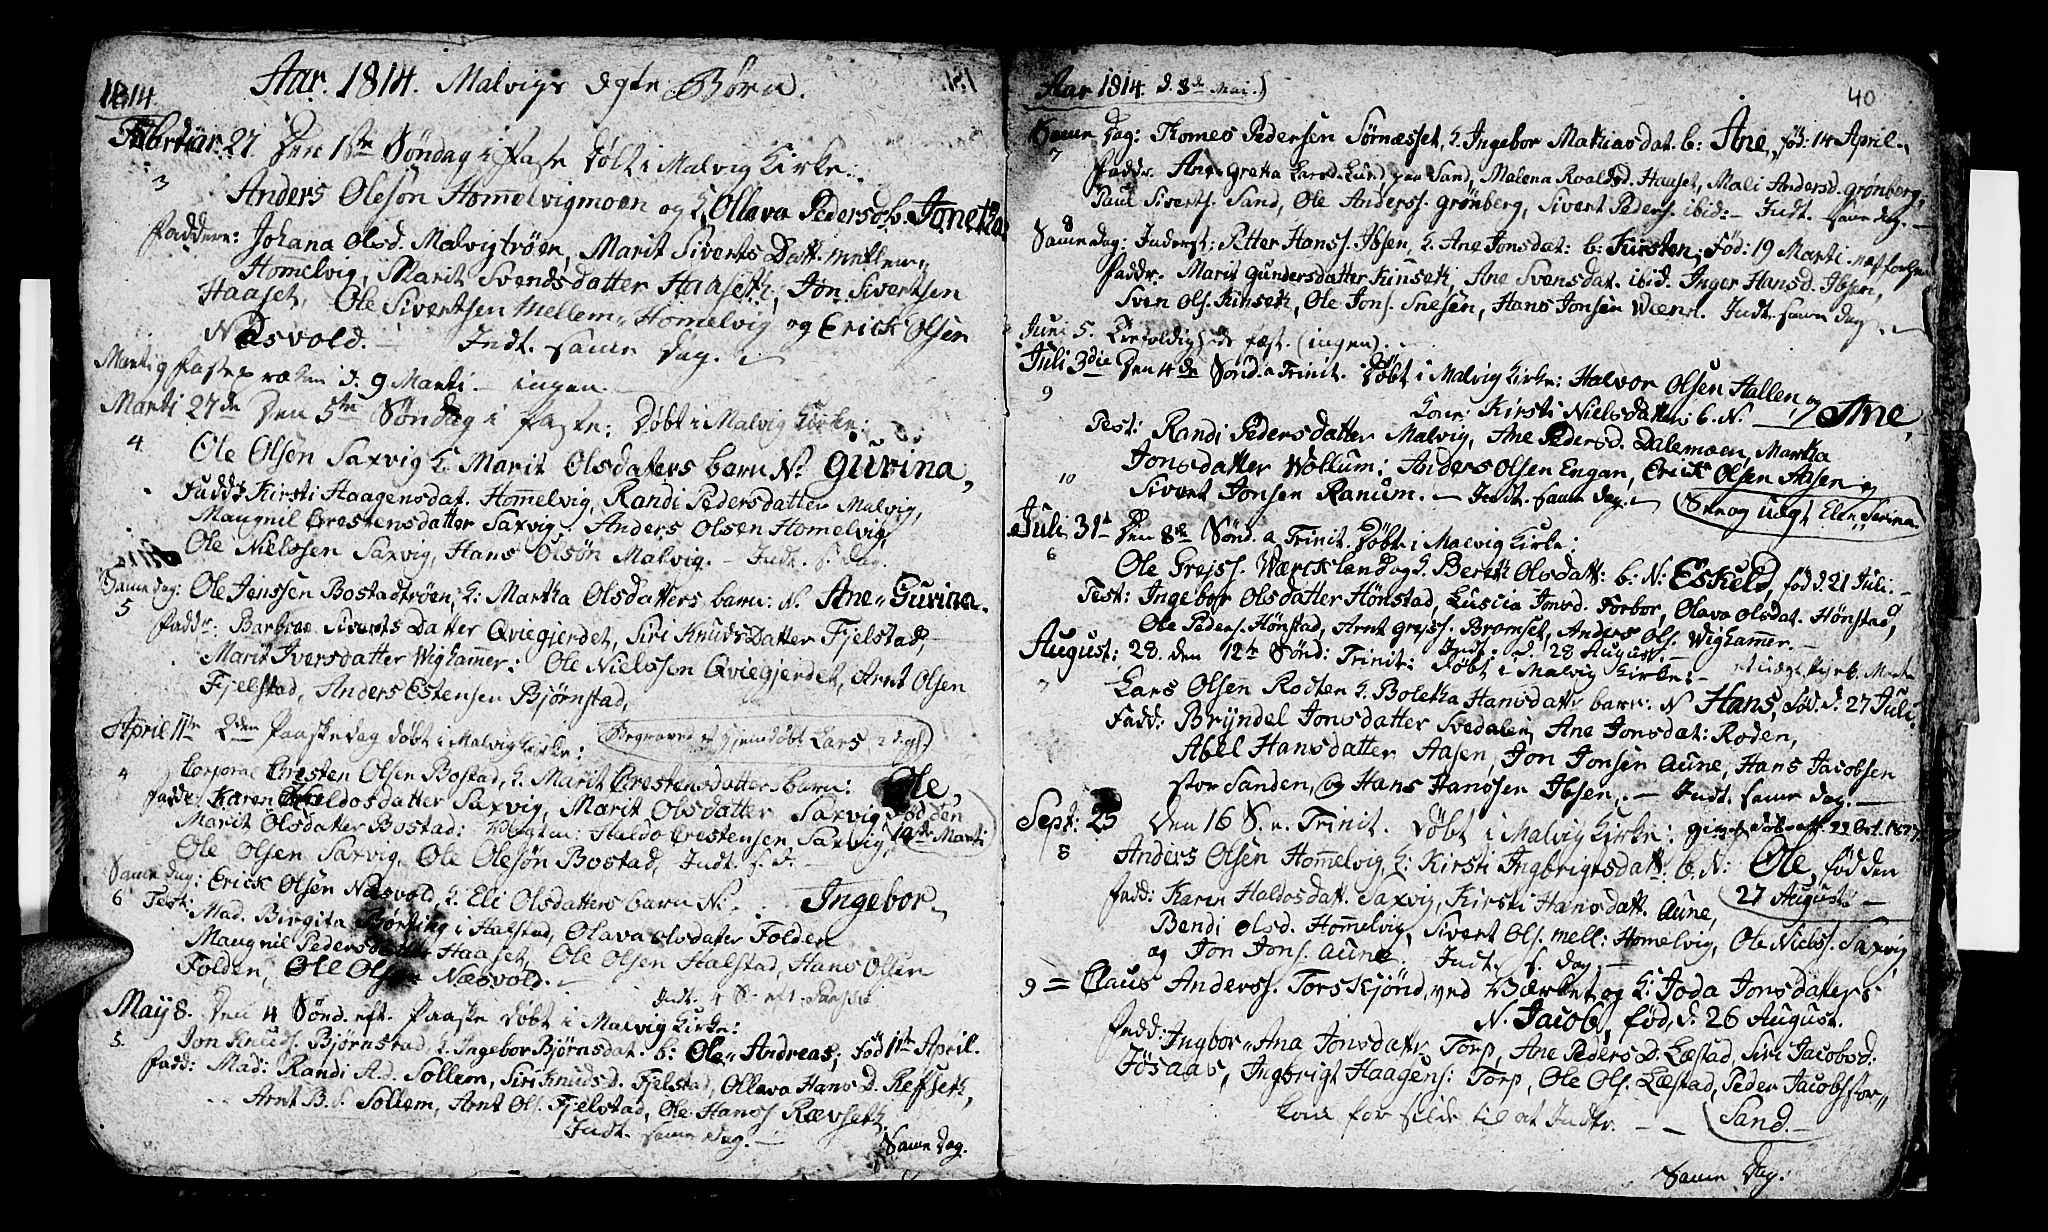 1814.
Aar. 1814. Malvigs ægte Børn.
Februar. 27. Den 1ste Søndag i faste døbt i Malvig Kirke:
3
Anders Olesøn Homelvigmoen og K. Ollava Pedersd. b. Jonetha
Faddere: Johana Olsd. Malvigtrøen, Marit Siverts Datt. mellem
Homelvig, Marit Svendsdatter Haaseth, Jon Sivertsen
Haaset, Ole Sivertsen Mellem Homelvig og Erick Olsen
Næsvold. — Indt. samme Dag.
Marti 9 fasteprædken d. 9 Marti — ingen. —
Marti 27de Den 5te Søndag i faste: Døbt i Malvig Kirke:
4
Ole Olsøn Saxvig K. Marit Olsdaters barn N: Guvina,
Fadd: Kirsti Haagensdat. Homelvig, Randi Pedersdatter Malvig,
Maugnil Crestensdatter Saxvig, Anders Olsen Homelvig,
Ole Nielssen Saxvig, Hans Olsøn Malvig. — Indt. s. Dag.
Samme dag: Ole Jenssen Bostadtrøen, K: Martha Olsdatters barn: N. Ane Guvina.
5
Faddr: Barbroe Siverts Datter Qviegjerdet, Siri Knuds Datter Fjelstad,
Marit Iversdatter Wighammer: Ole Nielssen Qviegjerdet, Arnt Olsen
Fjelstad, Anders Estensen Bjørnstad,
April 11te 2den Paaskedag døbt i Malvig Kirke: Begraved et hjemdøbt Lars
4
Corporal Cresten Olsen Bostad, K. Marit Crestensdatters barn: Ole,
Fadd: Karen Haldosdatter Saxvig, Marit Olsdatter Saxvig, fød den
Marit Olsdatter Bostad: Haldo Crestensen Saxvig, 19de Marti
Ole Olsen Saxvig, Ole Olesøn Bostad, Indt. s. D. —
Samme dag: Erick Olsen Næsvold, K: Eli Olsdatters barn N: Ingebor
6 Test: Mad. Birgita Halstad, Olava Olsdater Folden
Maugnil Pedersdatter Haaset, Ole Olsen Halstad, Hans Olsen
Folden, Ole Olsen Næsvold. —
Indt. 4 S. eft. Paaske
May 8. Den 4 Sønd. eft. Paaske døbt i Malvig Kirke:
5. Jon Knuds. Bjørnstad, K. Ingebor Bjørnsdat. b: Ole Andreas, fød 1te April.
Fadd: Mad: Randi A.d. Sollem, Siri Knuds D. Fjelstad, Ollava Hans D. Refseth,
Arnt B.s. Sollem, Arnt Ols. Fjelstad, Ole Hans s. Rævseth.
Indt. samme Dag. —
Samme Dag.
Aar 1814 d. 8de Mai.
40
Samme Dag: Thomes Pedersen Sørnæsset, K. Ingebor Mathiasdat. b: Ane, fød: 14 April.
7
Faddr. Ane Gretha Larsd. Lund paa Sand, Malena Roaldsd. Haaset, Mali Andersd. Grønberg,
Paul Siverts. Sand, Ole Anderss. Grønberg, Sivert Peders. ibid: — Indt. samme dag. —
8
Samme dag: Inderst: Petter Hanss. Ibsen, K. Ane Jonsdat: b: Kirsten, Fød: 19 Marti
Faddr. Marit Gundersdatter Kinseth, Ane Svensdat. ibid. Inger Hansd. Ibsen,
Sven Ols. Kinseth, Ole Jons. Snesen, Hans Jonsen Ween. Indt. samme dag.
Juni 5. Trefoldigheds fest. (ingen). —
Juli 3die Den 4de Sønd. a Trinit. Døbt i Malvig Kirke: Halvor Olsen Hallen, og
9
Kone: Kirsti Nielsdatter b. N. Ane,
Test: Randi Pedersdatter Malvig, Ane Pedersd. Dalemoen, Martha
Jonsdatter Wollum: Anders Olsen Engan, Erick Olsen Aasen og
10
Sivert Jonsen Ranum. — Indt. samme dag. —
Juli 31te Den 8de Sønd. a Trinit. Døbt i Malvig Kirke:
6
Ole Grejss. Værcksland og K. Bereth Olsdatt: b: N: Eskeld, fød d. 21 Juli. —
Test: Ingebor Olsdatter Hønstad, Luscia Jonsd. Forbor, Olava Olsdat. Hønstad,
Ole Peders. Hønstad, Arnt Grejss. Bromset, Anders Ols. Wighammer. —
Indt. d. 28 August. —
August: 28. den 12te Sønd: Trinit: Døbt i Malvig Kirke: —
7
Lars Olsen Rodten K. Boletha Hansdattr barn: N Hans, fød. d. 27 Juli:
Fadd: Bryndel Jonsdatter Svedalen, Ane Jonsdat: Roden,
Abel Hansdatter Aasen, Jon Jonsen Aune, Hans Jacobsen
stor Sanden, og Hans Hanssen Ibsen. — Indt. samme dag. —
Sept: 25 Den 16 S. a. Trinit. Døbt i Malvig Kirke:
8
Anders Olsen Homelvig, K: Kirsti Ingbrigtsdatt. b. N: Ole, fød den
27 August. —
Fadd: Karen Haldosdatt. Saxvig, Kirsti Hansdatt. Aune,
Bendi Olsd. Homelvig, Sivert Ols. mell: Homelvig, Ole Nielss. Saxvig
og Jon Jons. Aune. Indt. s. Dag. —
9 = Claus Anderss. Torskjønd, ved Værket og K: Joda Jonsdaters
N. Jacob, fød, d. 26 August.
Fadd: Ingbor Ana Jonsdatr Torp, Ane Peders D. Læstad, Siri Jacobsd.
Jøsaas, Ingbrigt Haagens: Torp, Ole Ols. Læstad, Peder Jacobs stor
Sand. —
Kom for silde til at Indtr. —
Samme Dag: